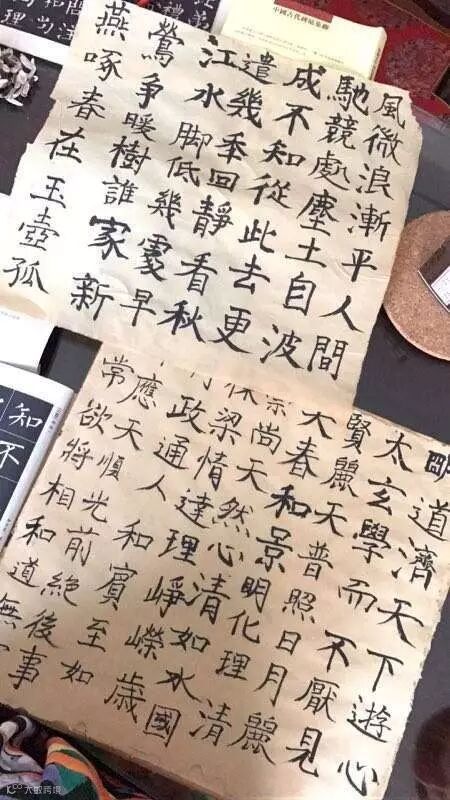 風微浪漸平人間
馳競處塵土自波
成不知從此去更
遣幾秊回靜看秋
江水脚低幾處早
鶯爭暖樹誰家新
燕啄春在玉壺孤
道濟天下遊心
太玄學而不厭見
賢麗天普照日月麗
大春和景明化理清
崇尚天然心清如水國
保梁情達理崢嶸歲
政通人和賓至如
應天順光前絕後事
常欲將相和道無
知
不
大数跨境